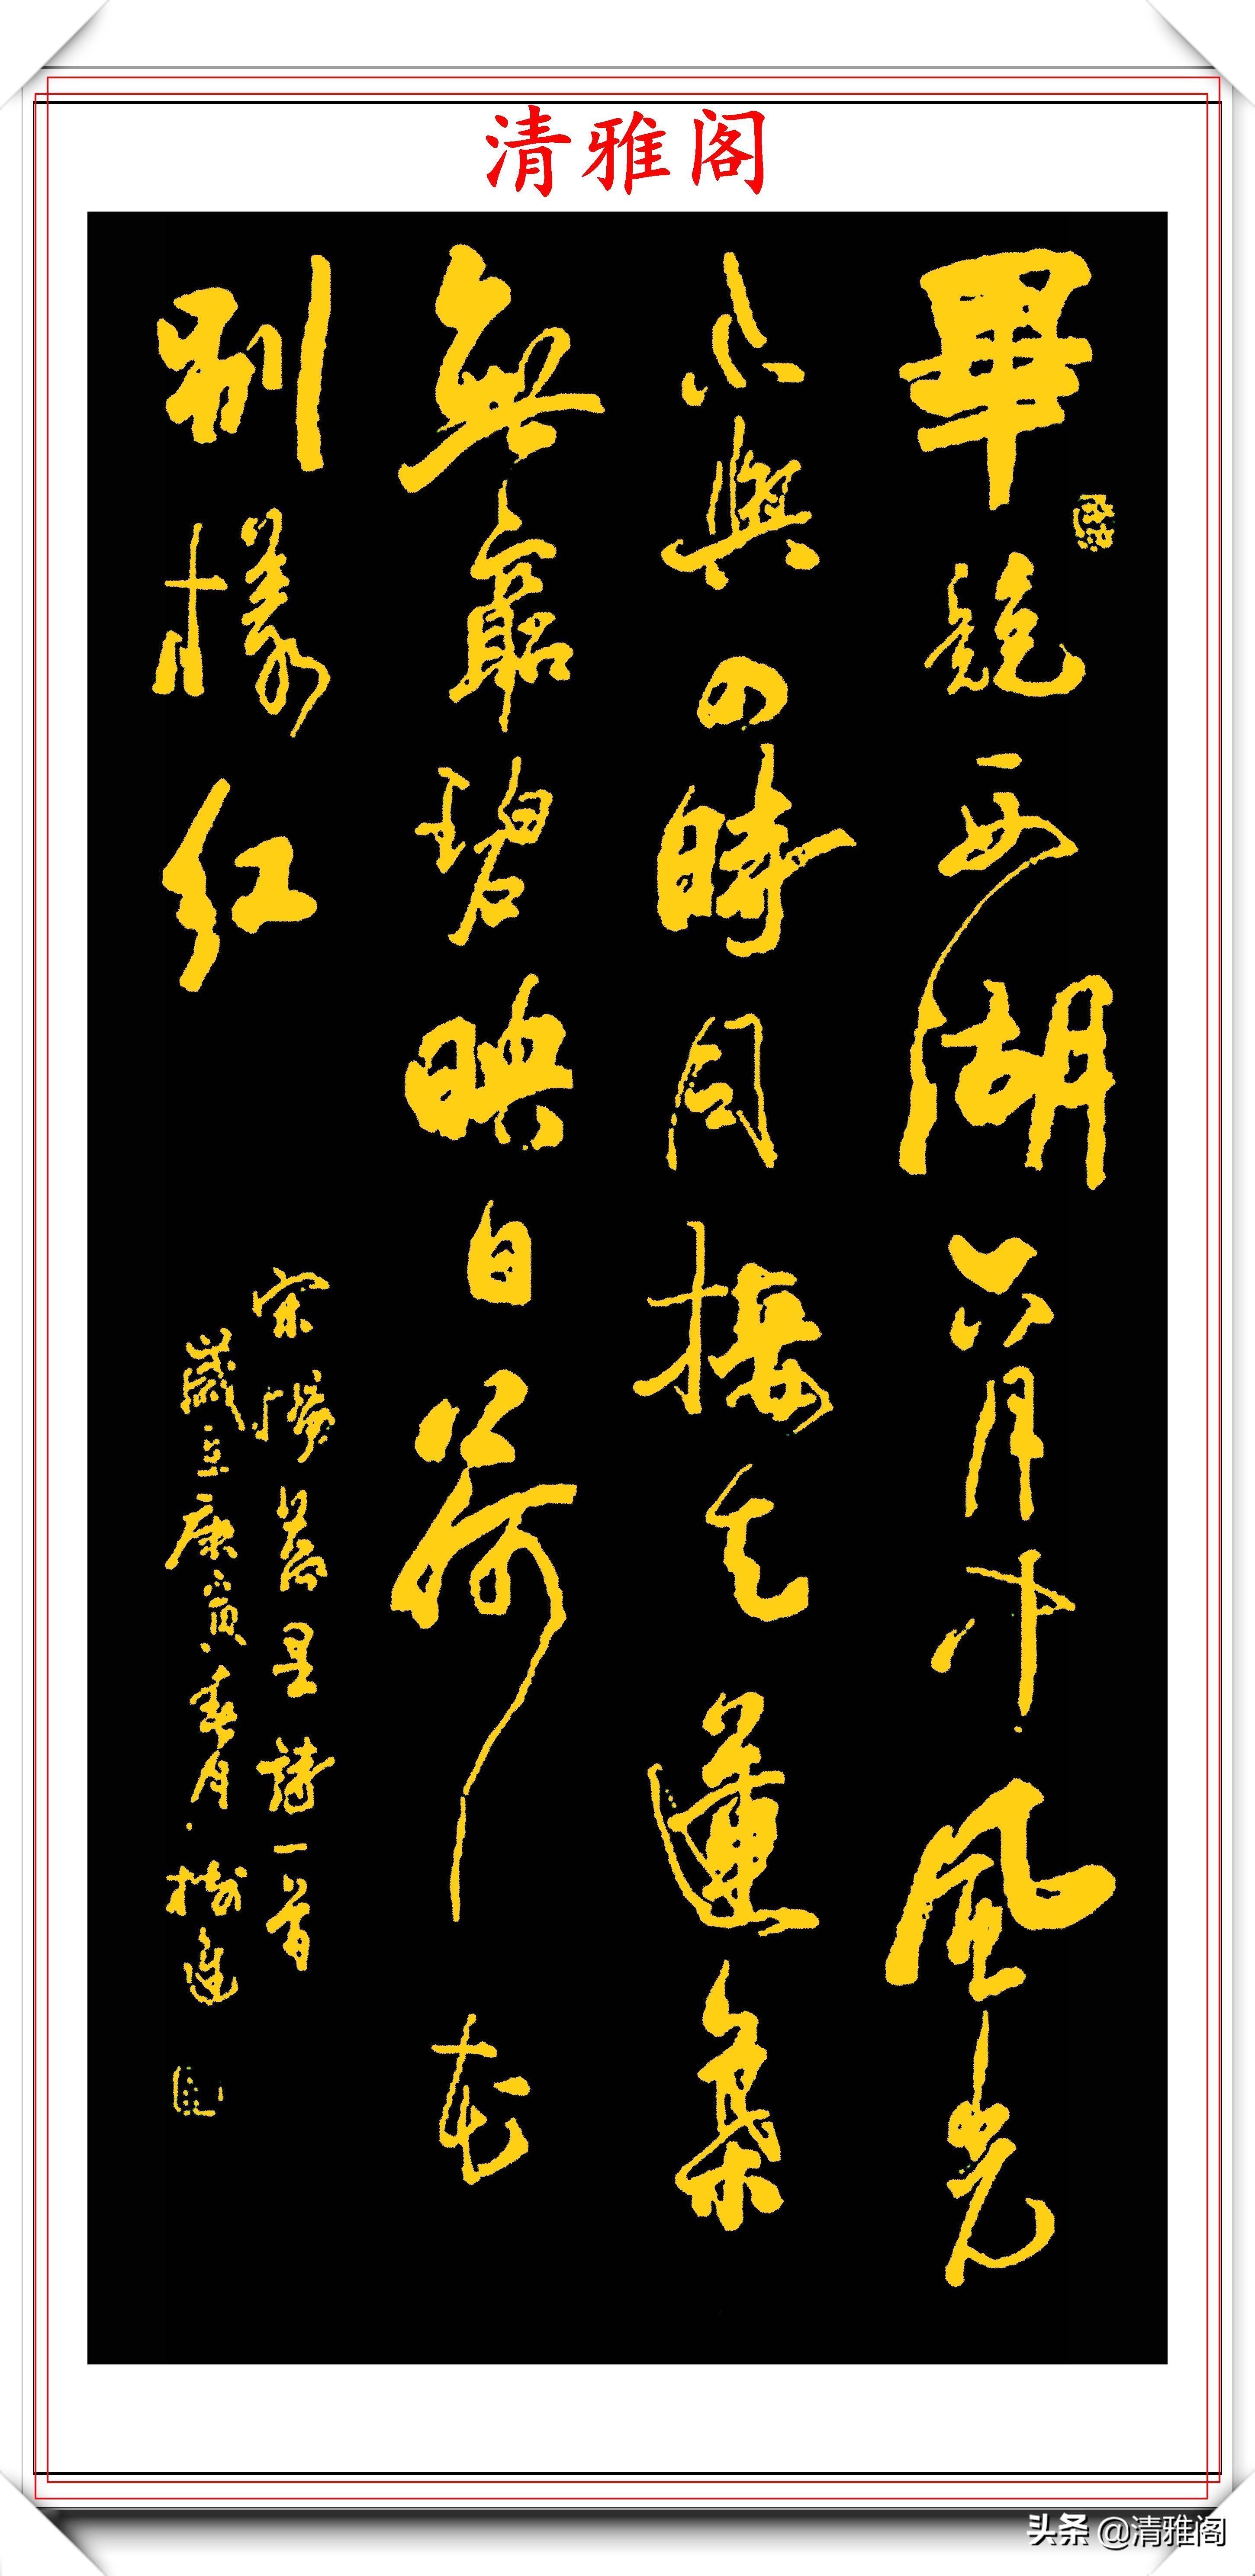 清雅阁
畢競西湖六月中風光
不與四時同接天蓮葉
無窮碧映日荷花
別樣红
宋楊萬里詩一首
歲在庚寅春月樹進
头条 @清雅阁